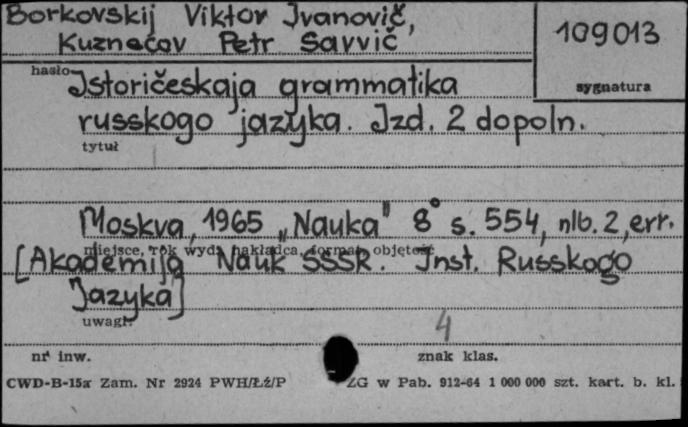 Borkovskij Viktor Ivanovič,
Kuznecov Petr Savvič
109013
hasło
sygnatura
Istoričeskaja grammatika
russkogo jazyka. Izd. 2 dopoln.
tytuł
Moskva, 1965 „Nauka" 8° s. 554, nlb. 2, err.
miejsce, rok wyd., nakładca, format, objętość
[Akademija Nauk SSSR. Inst. Russkogo
Jazyka]
uwagi:
4
nr inw.
znak klas.
CWD-B-15a Zam. Nr 2924 PWH/Łź/P ZG w Pab. 912-64 1 000 000 szt. kart. b. kl.